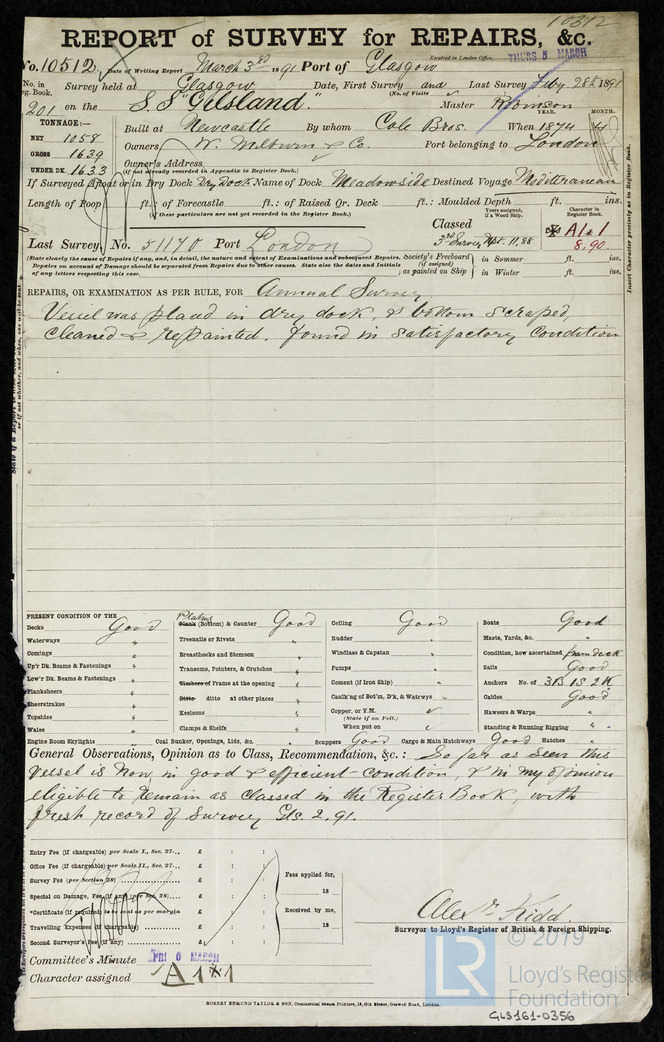 10512
REPORT of SURVEY for REPAIRS, &c.
No. 10512 Date of Writing Report March 3rd 1891 Port of Glasgow Received in London Office, THURS 5 MARCH
No. in Survey held at Glasgow Date, First Survey and Last Survey Feby 28th 1891
Reg. Book. (No. of Visits)
201 on the S.S "Gilsland." Master Thomson
TONNAGE:— YEAR. MONTH.
NET 1058 Built at Newcastle By whom Cole Bros. When 1874 4
GROSS 1639 Owners W. Milburn & Co. Port belonging to London
UNDER DK. 1633 Owner's Address
(if not already recorded in Appendix to Register Book.)
If Surveyed Afloat or in Dry Dock Dry Dock Name of Dock Meadowside Destined Voyage Mediteranean
Length of Poop ft.: of Forecastle ft.: of Raised Qr. Deck ft.: Moulded Depth ft. ins.
(these particulars are not yet recorded in the Register Book.)
Classed Years assigned, if a Wood Ship. Character in Register Book.
3rd Survey Npt. 11,88 A1 1
8,90
Last Survey, No. 51170 Port London
(State clearly the cause of Repairs if any, and, in detail, the nature and extent of Examinations and subsequent Repairs. Society's Freeboard in Summer ft. ins.
Repairs on account of Damage should be separated from Repairs due to other causes. State also the dates and Initials (if assigned)
of any letters respecting this case.) as painted on Ship in Winter ft. ins.
Insert Character precisely as in Register Book.
REPAIRS, OR EXAMINATION AS PER RULE, FOR Annual Survey
Vessel was placed in dry dock, & bottom scraped,
cleaned & repainted. found in satisfactory condition
PRESENT CONDITION OF THE
Decks Good
Waterways "
Comings "
Up'r Dk. Beams & Fastenings "
Low'r Dk. Beams & Fastenings "
Planksheers "
Sheerstrakes "
Topsides "
Wales "
Plating
Plank (Bottom) & Counter Good
Treenails or Rivets "
Breasthooks and Stemson "
Transoms, Pointers, & Crutches "
Timbers or Frame at the opening "
Ditto ditto at other places "
Keelsons "
Clamps & Shelfs "
Ceiling Good
Rudder "
Windlass & Capstan "
Pumps "
Cement (if Iron Ship) "
Caulk'ng of Bot'm, D'k, & Waterwys "
Copper, or Y.M.
(State if on Felt.)
When put on
Boats Good
Masts, Yards, &c. "
Condition, how ascertained from deck
Sails Good
Anchors No. of 3B 1S 2K
Cables Good
Hawsers & Warps "
Standing & Running Rigging "
Engine Room Skylights Coal Bunker, Openings, Lids, &c. " Scuppers Good Cargo & Main Hatchways Good Hatches "
General Observations, Opinion as to Class, Recommendation, &c.: So far as seen this
vessel is now in good & efficient condition, & in my opinion
eligible to remain as classed in the Register Book, with
fresh record of Survey Gls. 2, 91.
Entry Fee (if chargeable) per Scale I., Sec. 27... £ : :
Office Fee (if chargeable) per Scale II., Sec. 27... £ : :
Survey Fee (per Section 28) £ : :
Special on Damage, Fee (if any) (per Sec. 28) £ : :
*Certificate (if required) to be sent as per margin £ : :
Travelling Expenses (if chargeable) £ : :
Second Surveyor's Fee (if any) £ : :
Fees applied for,
18
Received by me,
18
Alexr. Kidd.
Surveyor to Lloyd's Register of British & Foreign Shipping.
Committee's Minute FRI 6 MARCH
Character assigned A1 1
© 2019
LR
Lloyd's Register
Foundation
ROBERT EDMUND TAYLOR & SON, Commercial Steam Printers, 19, Old Street, Goswell Road, London.
GLS161-0356